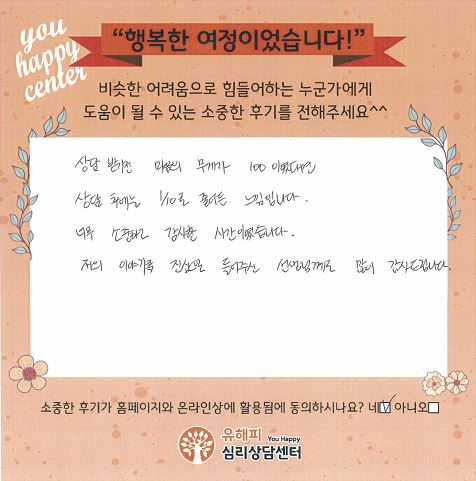 you
happy
center
“행복한 여정이었습니다!”
비슷한 어려움으로 힘들어하는 누군가에게
도움이 될 수 있는 소중한 후기를 전해주세요^^
상담 받기전 마음의 무게가 100 이었다면
상담 후에는 1/10로 줄어든 느낌입니다.
너무 소중하고 감사한 시간이었습니다.
저의 이야기를 진심으로 들어주신 선생님께도 많이 감사드립니다.
소중한 후기가 홈페이지와 온라인상에 활용됨에 동의하시나요? 네☑ 아니오☐
유해피 You Happy
심리상담센터